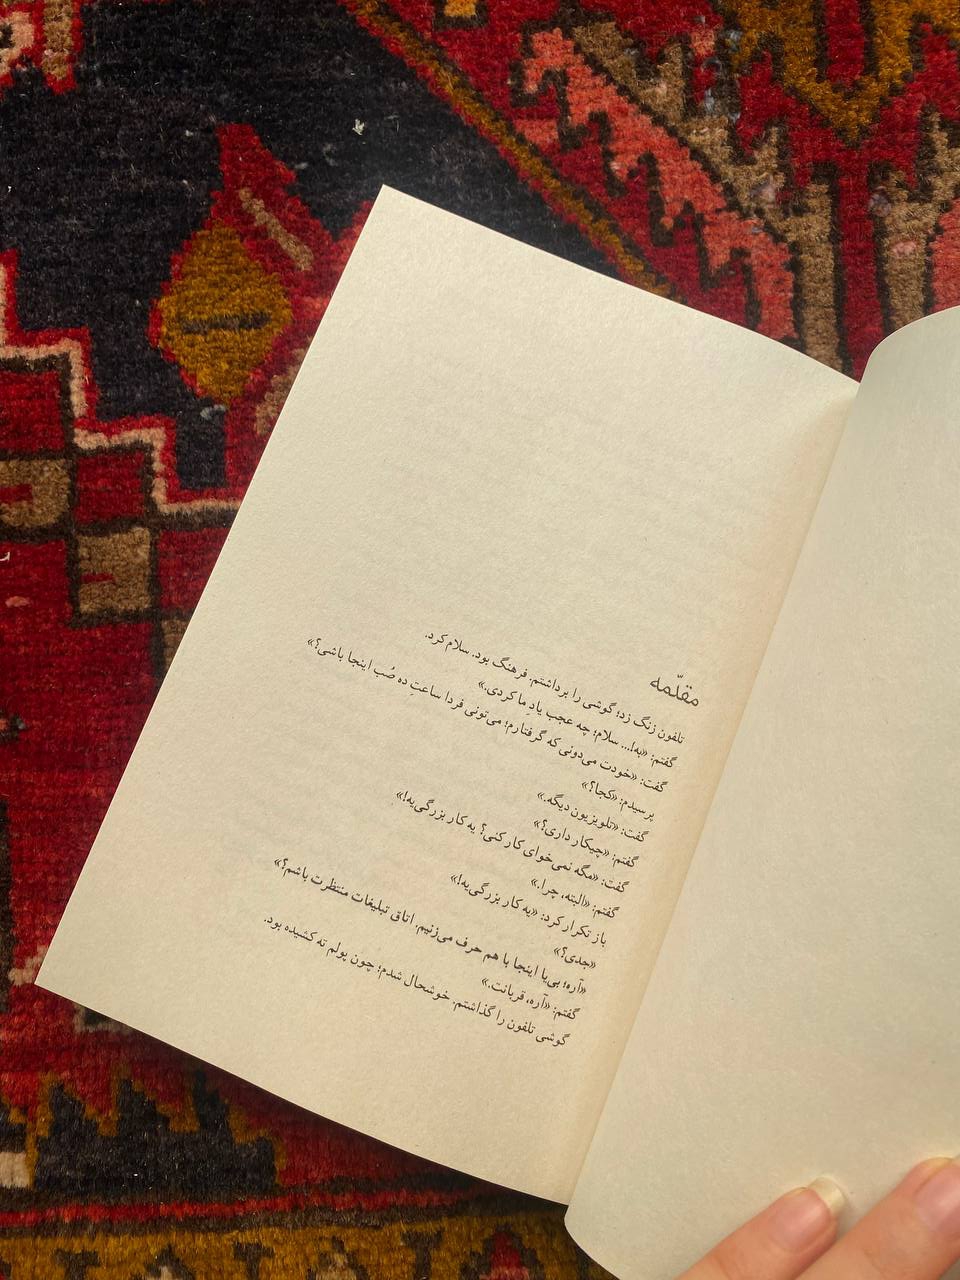 مقدّمه
تلفون زنگ زد؛ گوشی را برداشتم. فرهنگ بود. سلام کرد.
گفتم: «به!... سلام؛ چه عجب یادِ ما کردی.»
گفت: «خودت می‌دونی که گرفتارم؛ می‌تونی فردا ساعتِ ده صُب اینجا باشی؟»
پرسیدم: «کجا؟»
گفت: «تلویزیون دیگه.»
گفتم: «چیکار داری؟»
گفت: «مگه نمی‌خوای کار کنی؟ یه کار بزرگی‌یه!»
گفتم: «البته، چرا.»
باز تکرار کرد: «یه کار بزرگی‌یه!»
«جدی؟»
«آره؛ بی‌یا اینجا با هم حرف می‌زنیم. اتاق تبلیغات منتظرت باشم؟»
گفتم: «آره، قربانت.»
گوشی تلفون را گذاشتم. خوشحال شدم؛ چون پولم ته کشیده بود.